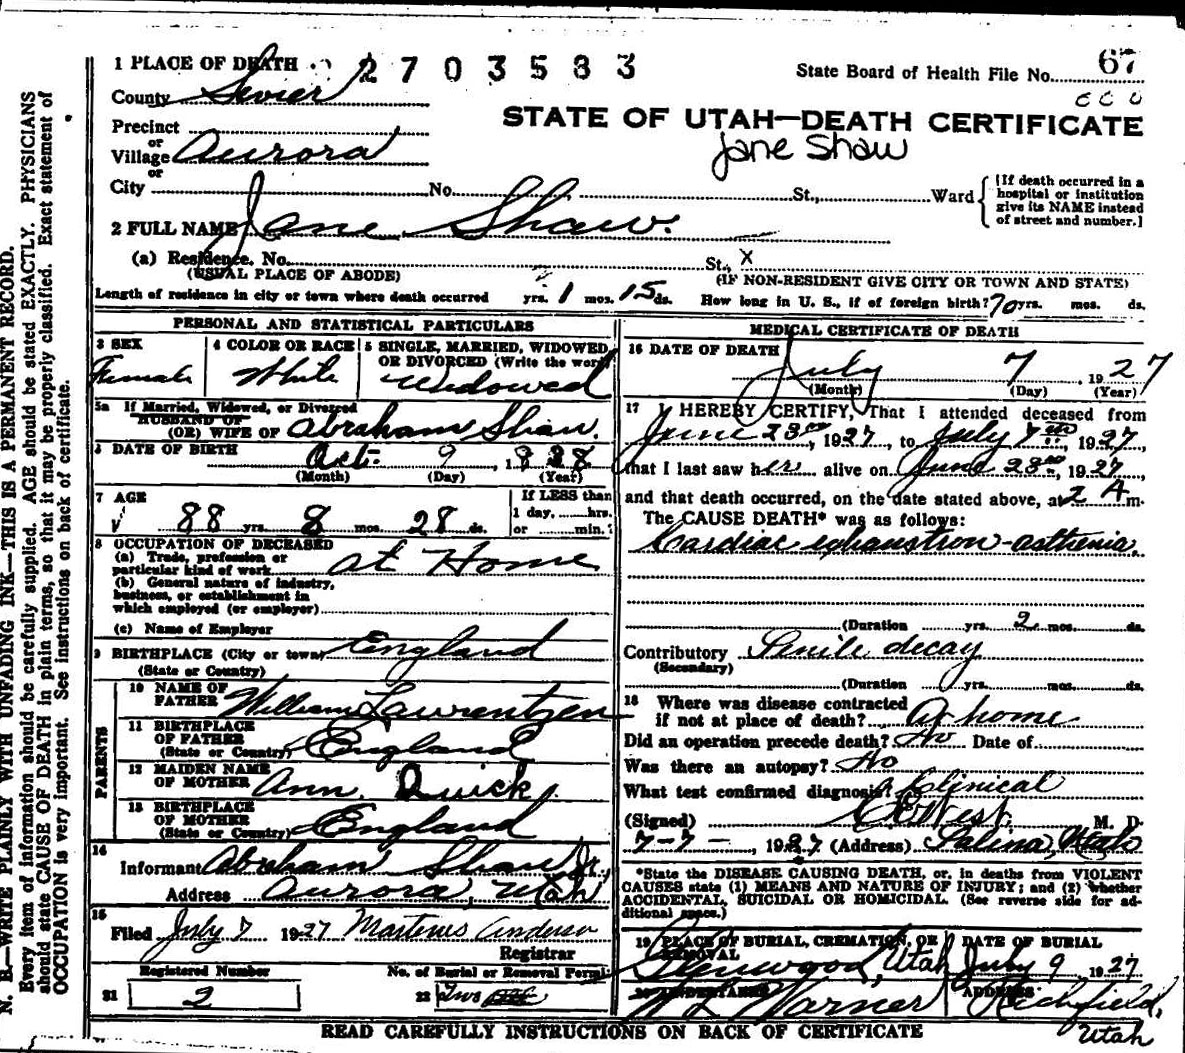 1 PLACE OF DEATH 2 7 0 3 5 8 3
State Board of Health File No. 67
County Sevier
STATE OF UTAH—DEATH CERTIFICATE
Jane Shaw
Precinct
or
Village Aurora
or
City No. St., Ward
[If death occurred in a
hospital or institution
give its NAME instead
of street and number.]
2 FULL NAME Jane Shaw.
(a) Residence. No. St., X
(USUAL PLACE OF ABODE) (IF NON-RESIDENT GIVE CITY OR TOWN AND STATE)
Length of residence in city or town where death occurred yrs. 1 mos. 15 ds. How long in U. S., if of foreign birth? 70 yrs. mos. ds.
PERSONAL AND STATISTICAL PARTICULARS
3 SEX
Female
4 COLOR OR RACE
White
5 SINGLE, MARRIED, WIDOWED
OR DIVORCED (Write the word)
Widowed
5a If Married, Widowed, or Divorced
HUSBAND OF
(OR) WIFE OF Abraham Shaw.
DATE OF BIRTH Oct. 9
(Month) (Day) (Year)
7 AGE
88 yrs. 8 mos. 28 ds.
If LESS than
1 day, hrs.
or min.
8 OCCUPATION OF DECEASED
(a) Trade, profession or
particular kind of work at Home
(b) General nature of industry,
business, or establishment in
which employed (or employer)
(c) Name of Employer
9 BIRTHPLACE (City or town) England
(State or Country)
PARENTS
10 NAME OF
FATHER William Lawrentzen
11 BIRTHPLACE
OF FATHER
(State or Country) England
12 MAIDEN NAME
OF MOTHER Ann Quick
13 BIRTHPLACE
OF MOTHER
(State or Country) England
14
Informant Abraham Shaw Jr.
Address Aurora, Utah
15
Filed July 7 1927 Martenus Anderson
Registrar
Registered Number
21 2
No. of Burial or Removal Permit
22 Two
MEDICAL CERTIFICATE OF DEATH
16 DATE OF DEATH July 7, 1927
(Month) (Day) (Year)
17 I HEREBY CERTIFY, That I attended deceased from
June 23rd, 1927, to July 7th 1927,
that I last saw her alive on June 23rd, 1927,
and that death occurred, on the date stated above, at 2 A m.
The CAUSE DEATH* was as follows:
Cardiac exhaustion-asthenia.
(Duration yrs. 2 mos. ds.
Contributory Senile decay
(Secondary)
(Duration yrs. mos. ds.
18 Where was disease contracted
if not at place of death? At home
Did an operation precede death? No Date of
Was there an autopsy? No
What test confirmed diagnosis? Clinical
(Signed) West, M. D.
7-7-, 1927 (Address) Salina, Utah
*State the DISEASE CAUSING DEATH, or, in deaths from VIOLENT
CAUSES state (1) MEANS AND NATURE OF INJURY; and (2) whether
ACCIDENTAL, SUICIDAL OR HOMICIDAL. (See reverse side for ad-
ditional space.)
19 PLACE OF BURIAL, CREMATION, OR
REMOVAL
Glenwood, Utah
DATE OF BURIAL
July 9, 1927
20 UNDERTAKER
W L Warner
ADDRESS
Richfield,
Utah
READ CAREFULLY INSTRUCTIONS ON BACK OF CERTIFICATE
N. B.—WRITE PLAINLY WITH UNFADING INK—THIS IS A PERMANENT RECORD.
Every item of information should be carefully supplied. AGE should be stated EXACTLY. PHYSICIANS
should state CAUSE OF DEATH in plain terms, so that it may be properly classified. Exact statement of
OCCUPATION is very important. See instructions on back of certificate.